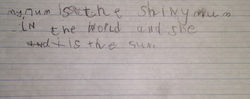 my mum is the shiny mum
in the world and she
is the sun